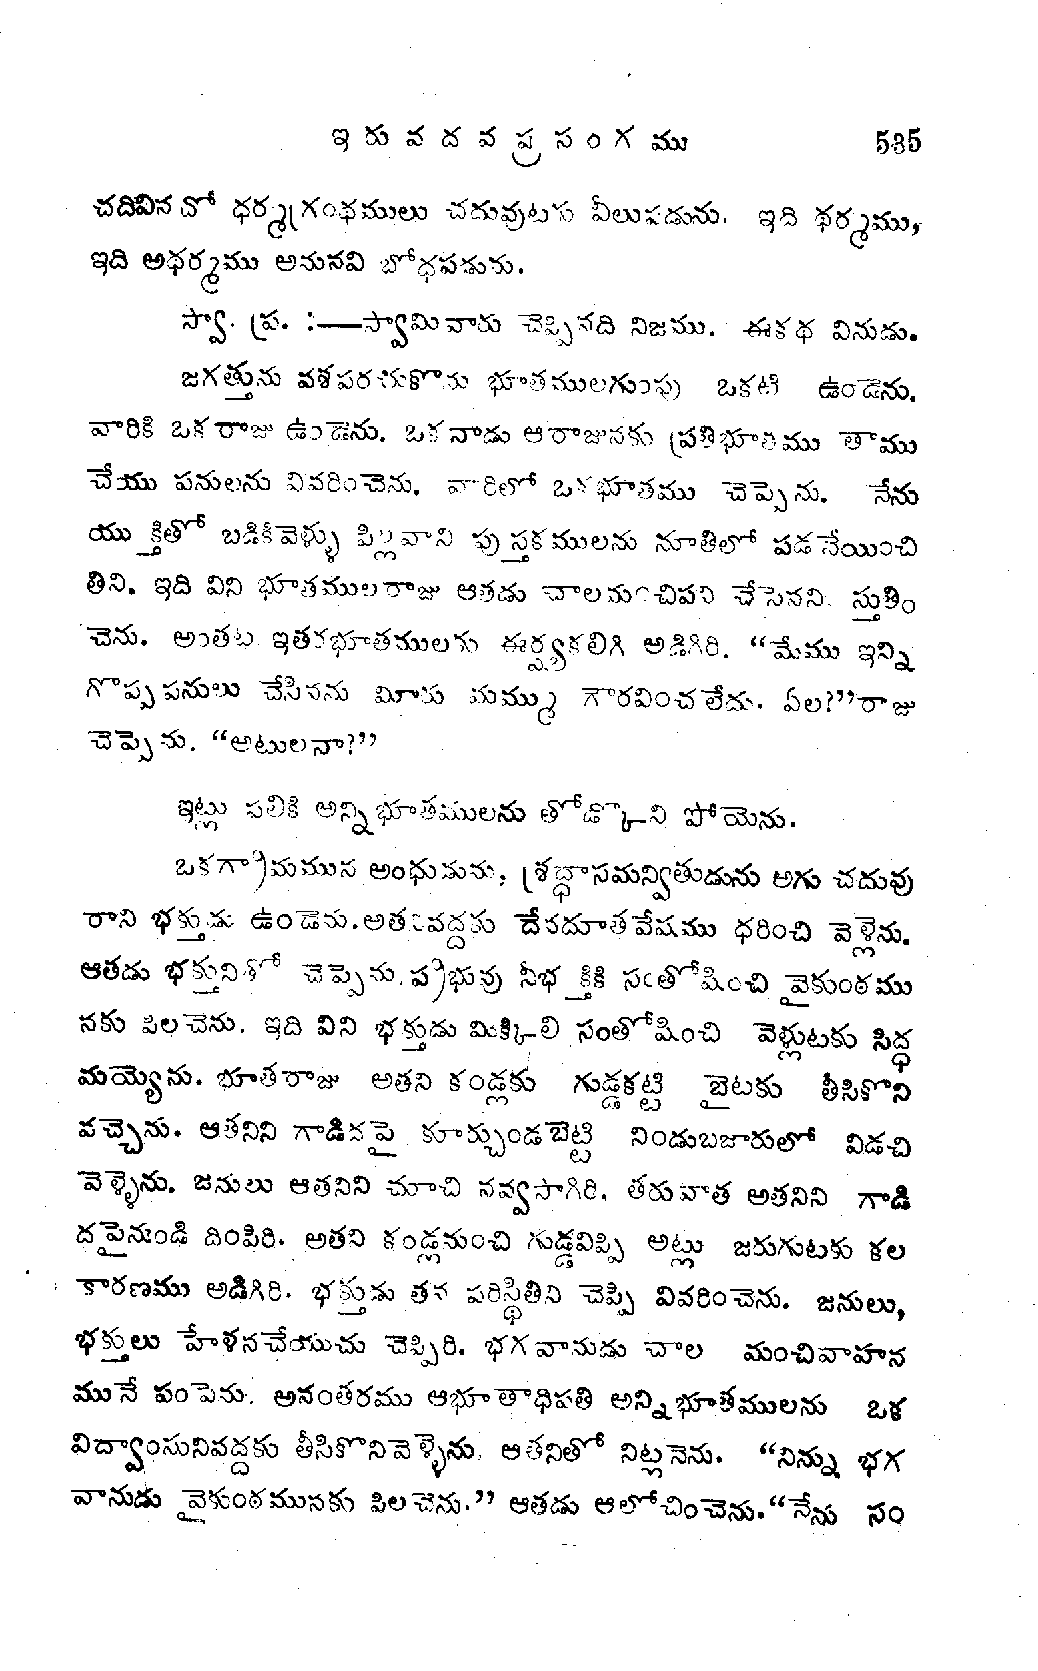 ఇరువదవప్రసంగము 535
చదివినచో ధర్మగ్రంథములు చదువుటకు వీలుపడును. ఇది థర్మము,
ఇది అథర్మము అనునవి బోధపడును.
స్వా. ప్ర. :—స్వామివారు చెప్పినది నిజము. ఈకథ వినుడు.
జగత్తును వశపరచుకొను భూతములగుంపు ఒకటి ఉండెను.
వారికి ఒకరాజు ఉండెను. ఒకనాడు ఆరాజునకు ప్రతిభూతము తాము
చేయు పనులను వివరించెను. వారిలో ఒకభూతము చెప్పెను. నేను
యుక్తితో బడికివెళ్ళు పిల్లవాని పుస్తకములను నూతిలో పడనేయించి
తిని. ఇది విని భూతములరాజు ఆతడు చాలమంచిపని చేసెనని స్తుతిం
చెను. అంతట ఇతరభూతములకు ఈర్ష్యకలిగి అడిగిరి. “మేము ఇన్ని
గొప్ప పనులు చేసినను మీరు మమ్ము గౌరవించలేదు. ఏల?”రాజు
చెప్పెను. “అటులనా?”
ఇట్లు పలికి అన్నిభూతములను తోడ్కొని పోయెను.
ఒకగ్రామమున అంధుడును, శ్రద్ధాసమన్వితుడును అగు చదువు
రాని భక్తుడు ఉండెను.అతనివద్దకు దేవదూతవేషము ధరించి వెళ్లెను.
ఆతడు భక్తునితో చెప్పెను.ప్రభువు నీభక్తికి సంతోషించి వైకుంఠము
నకు పిలచెను. ఇది విని భక్తుడు మిక్కిలి సంతోషించి వెళ్లుటకు సిద్ధ
మయ్యెను. భూతరాజు అతని కండ్లకు గుడ్డకట్టి బైటకు తీసికొని
వచ్చెను. ఆతనిని గాడిదపై కూర్చుండబెట్టి నిండుబజారులో విడచి
వెళ్ళెను. జనులు ఆతనిని చూచి నవ్వసాగిరి. తరువాత అతనిని గాడి
దపైనుండి దింపిరి. అతని కండ్లనుంచి గుడ్డవిప్పి అట్లు జరుగుటకు కల
కారణము అడిగిరి. భక్తుడు తన పరిస్థితిని చెప్పి వివరించెను. జనులు,
భక్తులు హేళనచేయుచు చెప్పిరి. భగవానుడు చాల మంచివాహన
మునే పంపెను. అనంతరము ఆభూతాధిపతి అన్నిభూతములను ఒక
విద్వాంసునివద్దకు తీసికొనివెళ్ళెను. ఆతనితో నిట్లనెను. “నిన్ను భగ
వానుడు వైకుంఠమునకు పిలచెను.” ఆతడు ఆలోచించెను.“నేను సం